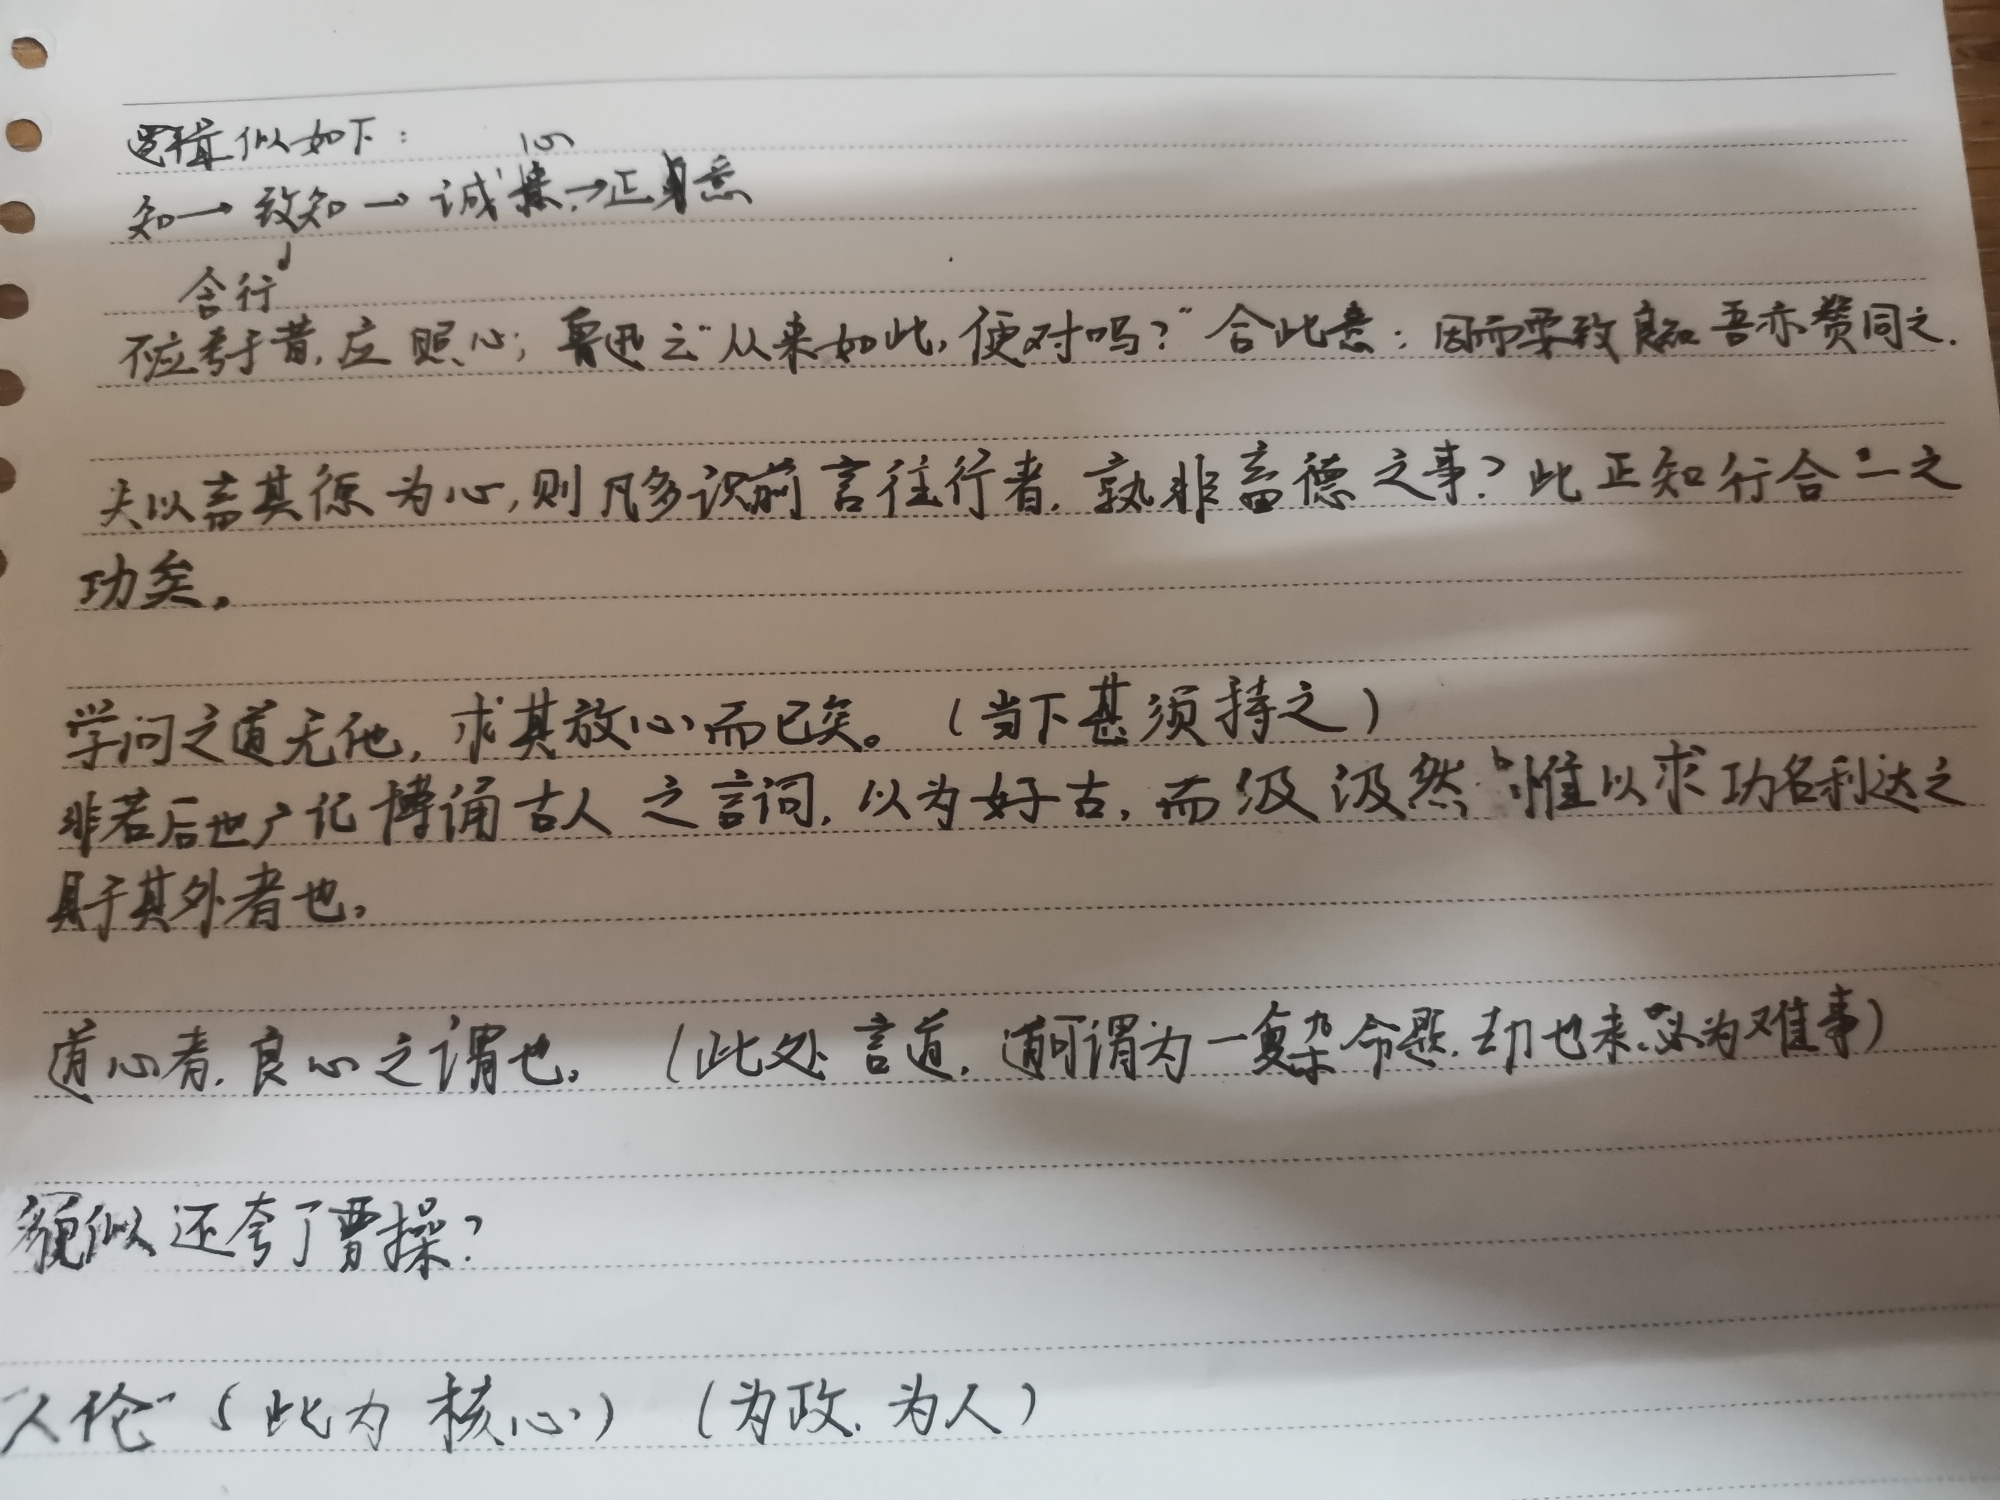 逻辑似如下：
心
知→致知→诚 →正意
含行
不应考于昔，应照心；鲁迅云“从来如此，便对吗？”合此意；因而要致良知吾亦赞同之.
夫以畜其德为心，则凡多识前言往行者，孰非畜德之事？此正知行合一之
功矣。
学问之道无他，求其放心而已矣。（当下甚须持之）
非若后世广记博诵古人之言词，以为好古，而汲汲然惟以求功名利达之
具于其外者也。
道心者，良心之谓也。（此处言道，道可谓为一复杂命题，劫也来，必为难事）
貌似还夸了曹操？
“人伦”（此为核心）（为政，为人）